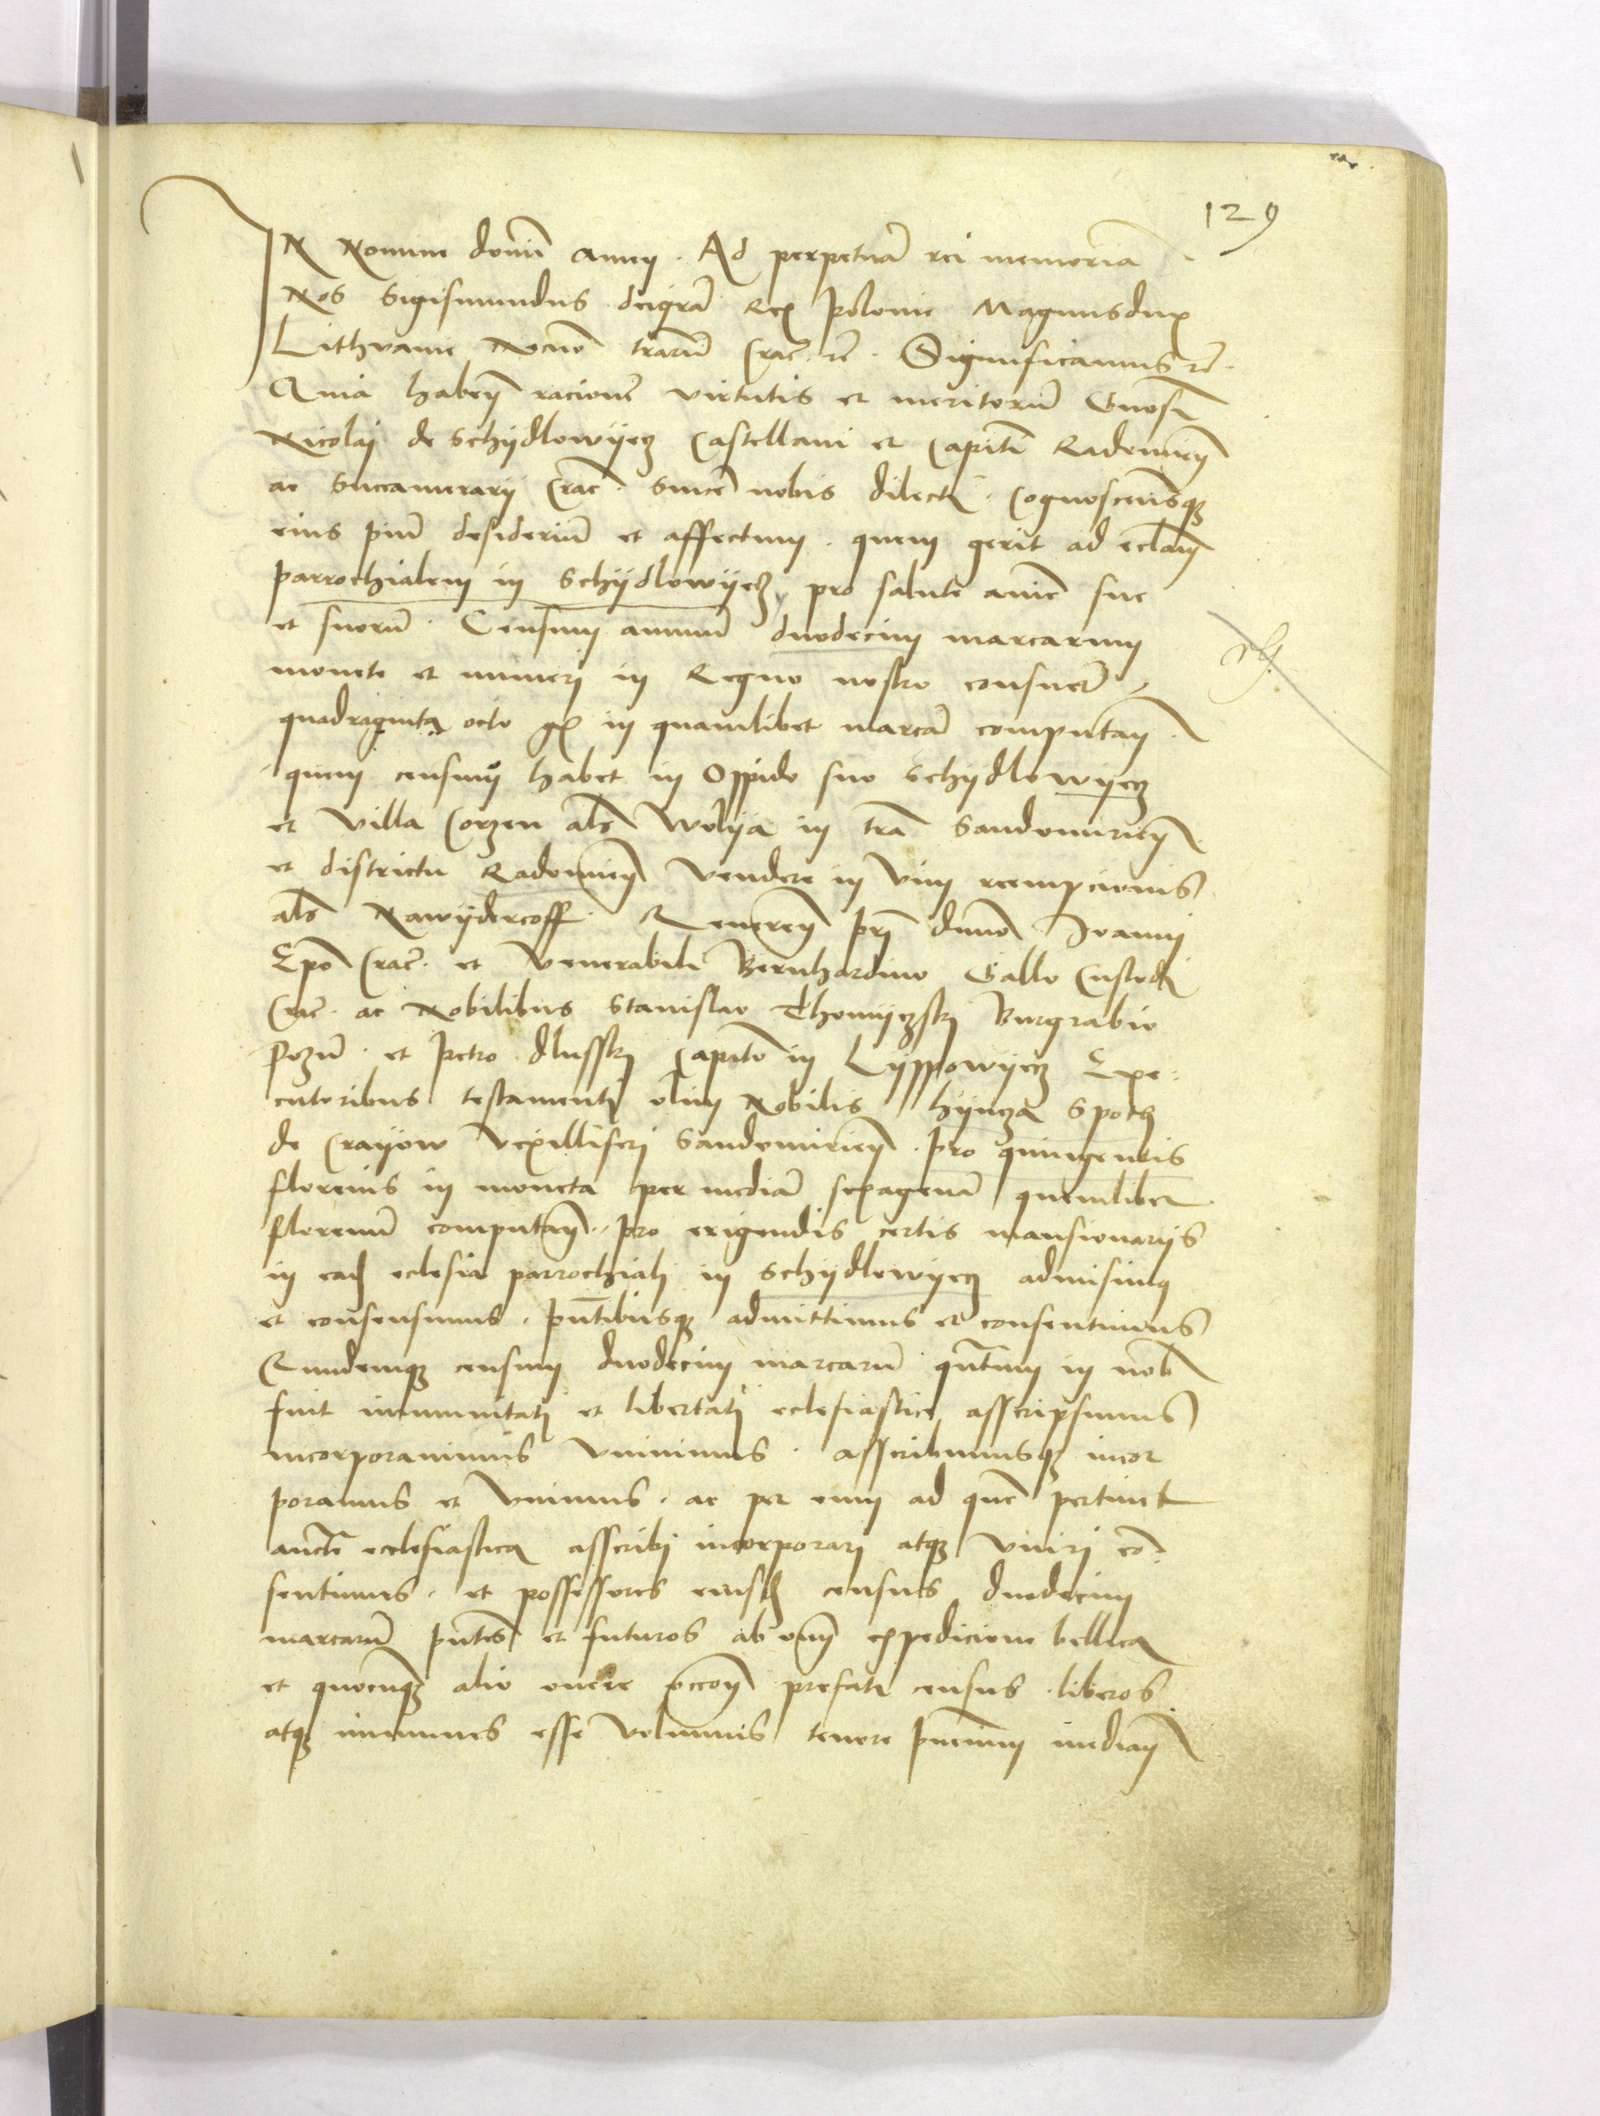 129
IN Nomine domini amen. Ad perpetuā rei memoriā
Nos Sigismundus deigrā Rex polonie Magnusdux
Lithvanie Necnō trarū Crac̄. rc̄. Significamus rc̄.
Quia haben̄ racionē virtutis et meritorū Gnosi
Nicolaj de Schijdlowyecz Castellani et Capitn̄ Radomien̄
ac Succamerarij Crac̄. Sincē nobis dilecti. Cognoscensq̄
eius piū desideriū et affectum. quem gerit ad ecclam̄
parrochialem in Schijdlowijecz pro salute anīe sue
et suorū. Censum annuū duodecim marcarum
monete et numeri in Regno nostro consuet̄
quadraginta octo gr̄ in quamlibet marcā computan̄.
quem censum habet in Oppido suo Schijdlowijecz
et villa Corzen al̄s Wolija in trā Sandomirien̄
et districtu Radomien̄ Vendere in Vim reempcionis
al̄s Nawijdercoff. Reueren̄ prī dnnō Joanni
Epō Crac̄. et Venerabili Bernhardino Gallo Custodi
Crac̄. ac Nobilibus Stanislao Thomijczskj Burgrabio
Pozn̄. et Petro dlusskj Capitō in Lijppowijecz Exe-
cutoribus testamenti olim Nobilis hijncza
de Crayow Vexilliferi Sandomirien̄. pro quingentis
florenis in moneta per mediā sexagenā quemlibet
florenū computan̄. pro erigendis certis mansionarijs
in ead̄ eclesia parrochiali in Schijdlowijecz admisimꝯ
et consensimus. pn̄tibusq̄ admittimus et consentimus
Eundemq̄ censum duodecim marcarū qn̄tum in nob̄
fuit immunitati et libertati eclesiastice asscripsimus
incorporauimus Vniuimus. asscribimusq̄ incor
poramus et Vnimus. ac per eum ad quē pertinet
aucte ecclesiastica asscribj incorporarj atq̄ Vnirj cō-
sentimus. et possessores eiusd̄ census duodecim
marcarū pn̄tes et futuros ab omj expedicione bellica
et quocunq̄ alio onere occoē prefati census liberos
atq̄ immunes esse volumus tenore pn̄cium median̄